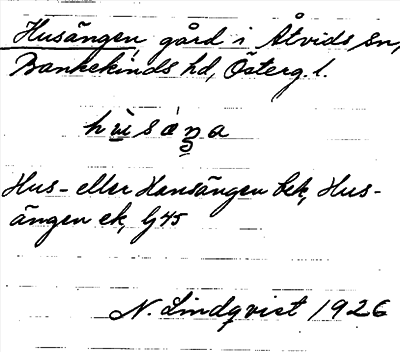 Husängen, gård i Åtvids sn,
Bankekinds hd, Österg. l.
hùsáŋa
Hus- eller Hansängen bek, Hus-
ängen ek, G45
N. Lindqvist 1926